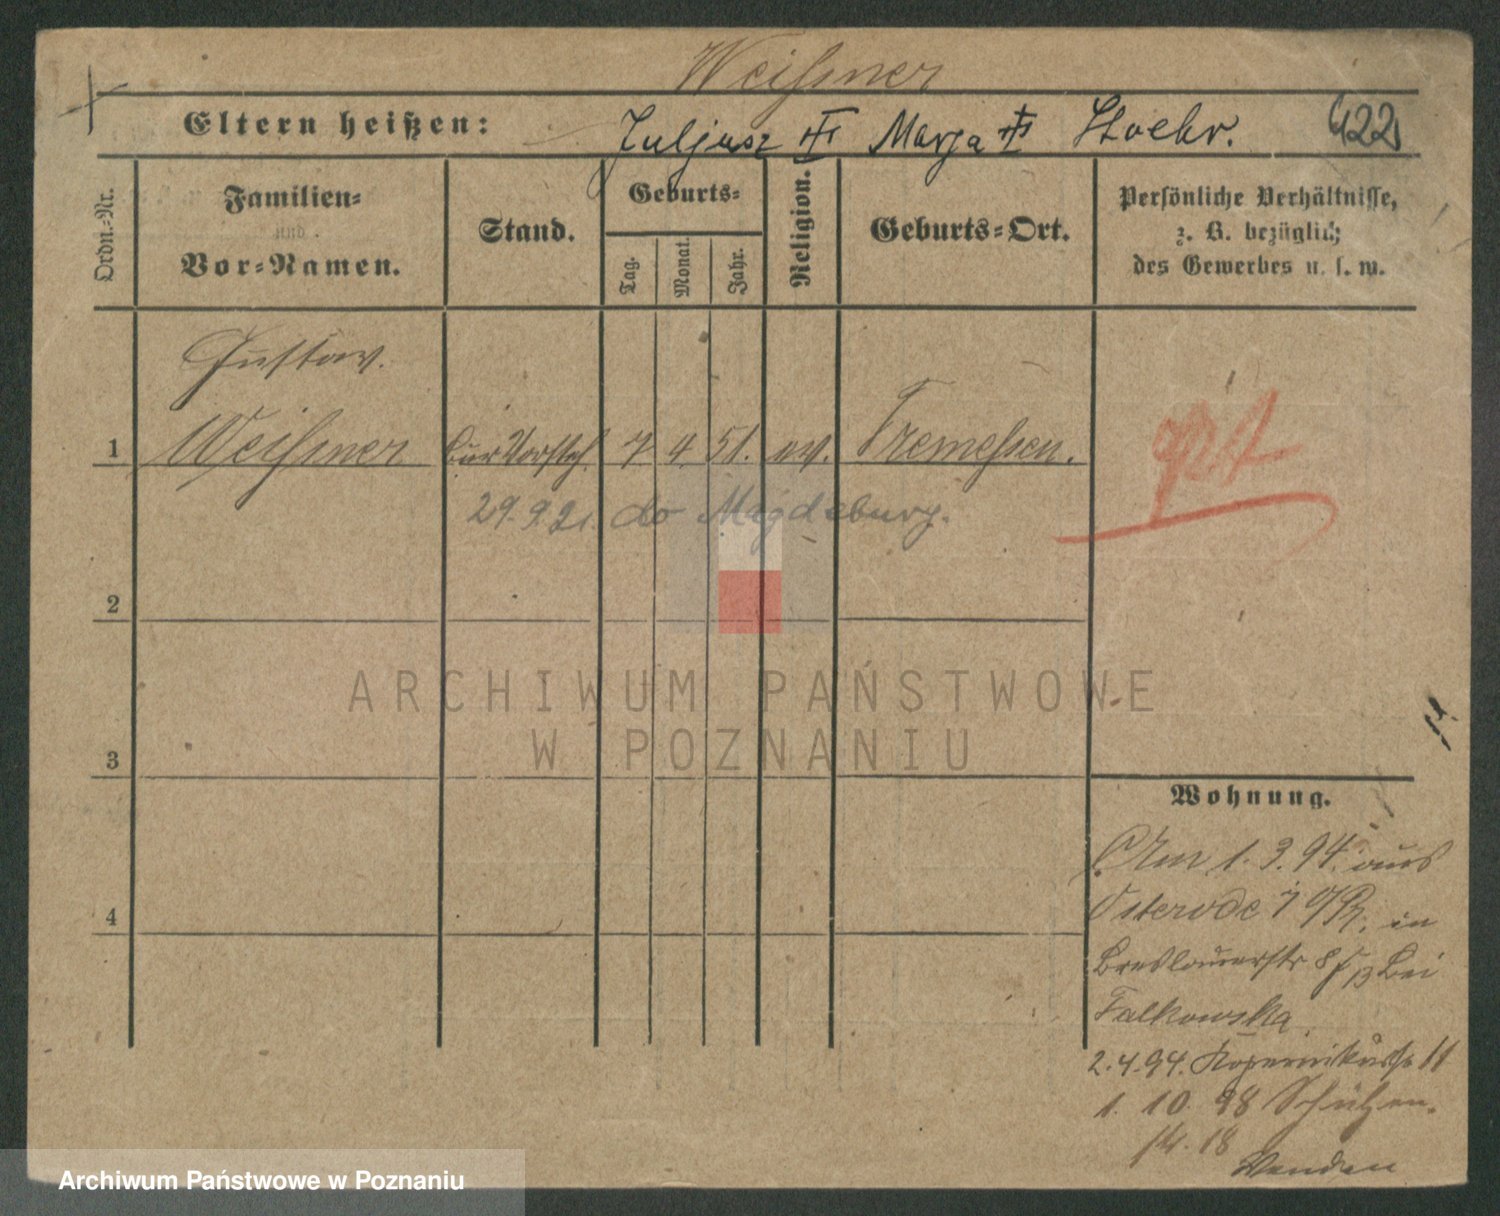 Weißner
Eltern heißen: Juljusz Marja Stoehr. 422
Ordn.-Nr.
Familien-
und
Vor-Namen.
Stand.
Geburts-
Tag.
Monat.
Jahr.
Religion.
Geburts-Ort.
Persönliche Verhältnisse,
z. B. bezüglich
des Gewerbes u. s. w.
Gustav.
1 Weißner BürVorsteh. 7. 4. 51. ev. Tremessen.
29.9.21. do Magdeburg.
2
3
4
Wohnung.
Am 1.3.94. aus
Osterode in
Breslauerstr bei
Falkowska
2.4.94. Kopernikusstr 11
1. 10. 98 Schützen-
str. 18
Wenden
ARCHIWUM PAŃSTWOWE
W POZNANIU
Archiwum Państwowe w Poznaniu